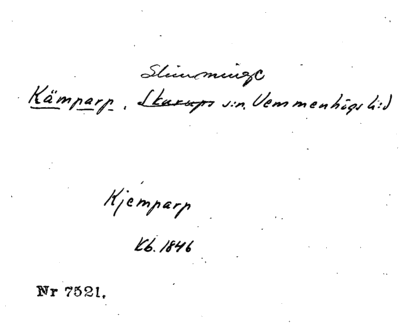 Slimminge
Kämparp, Skurups s:n, Vemmenhögs h:d
Kjemparp
Kb. 1846
Nr 7521.